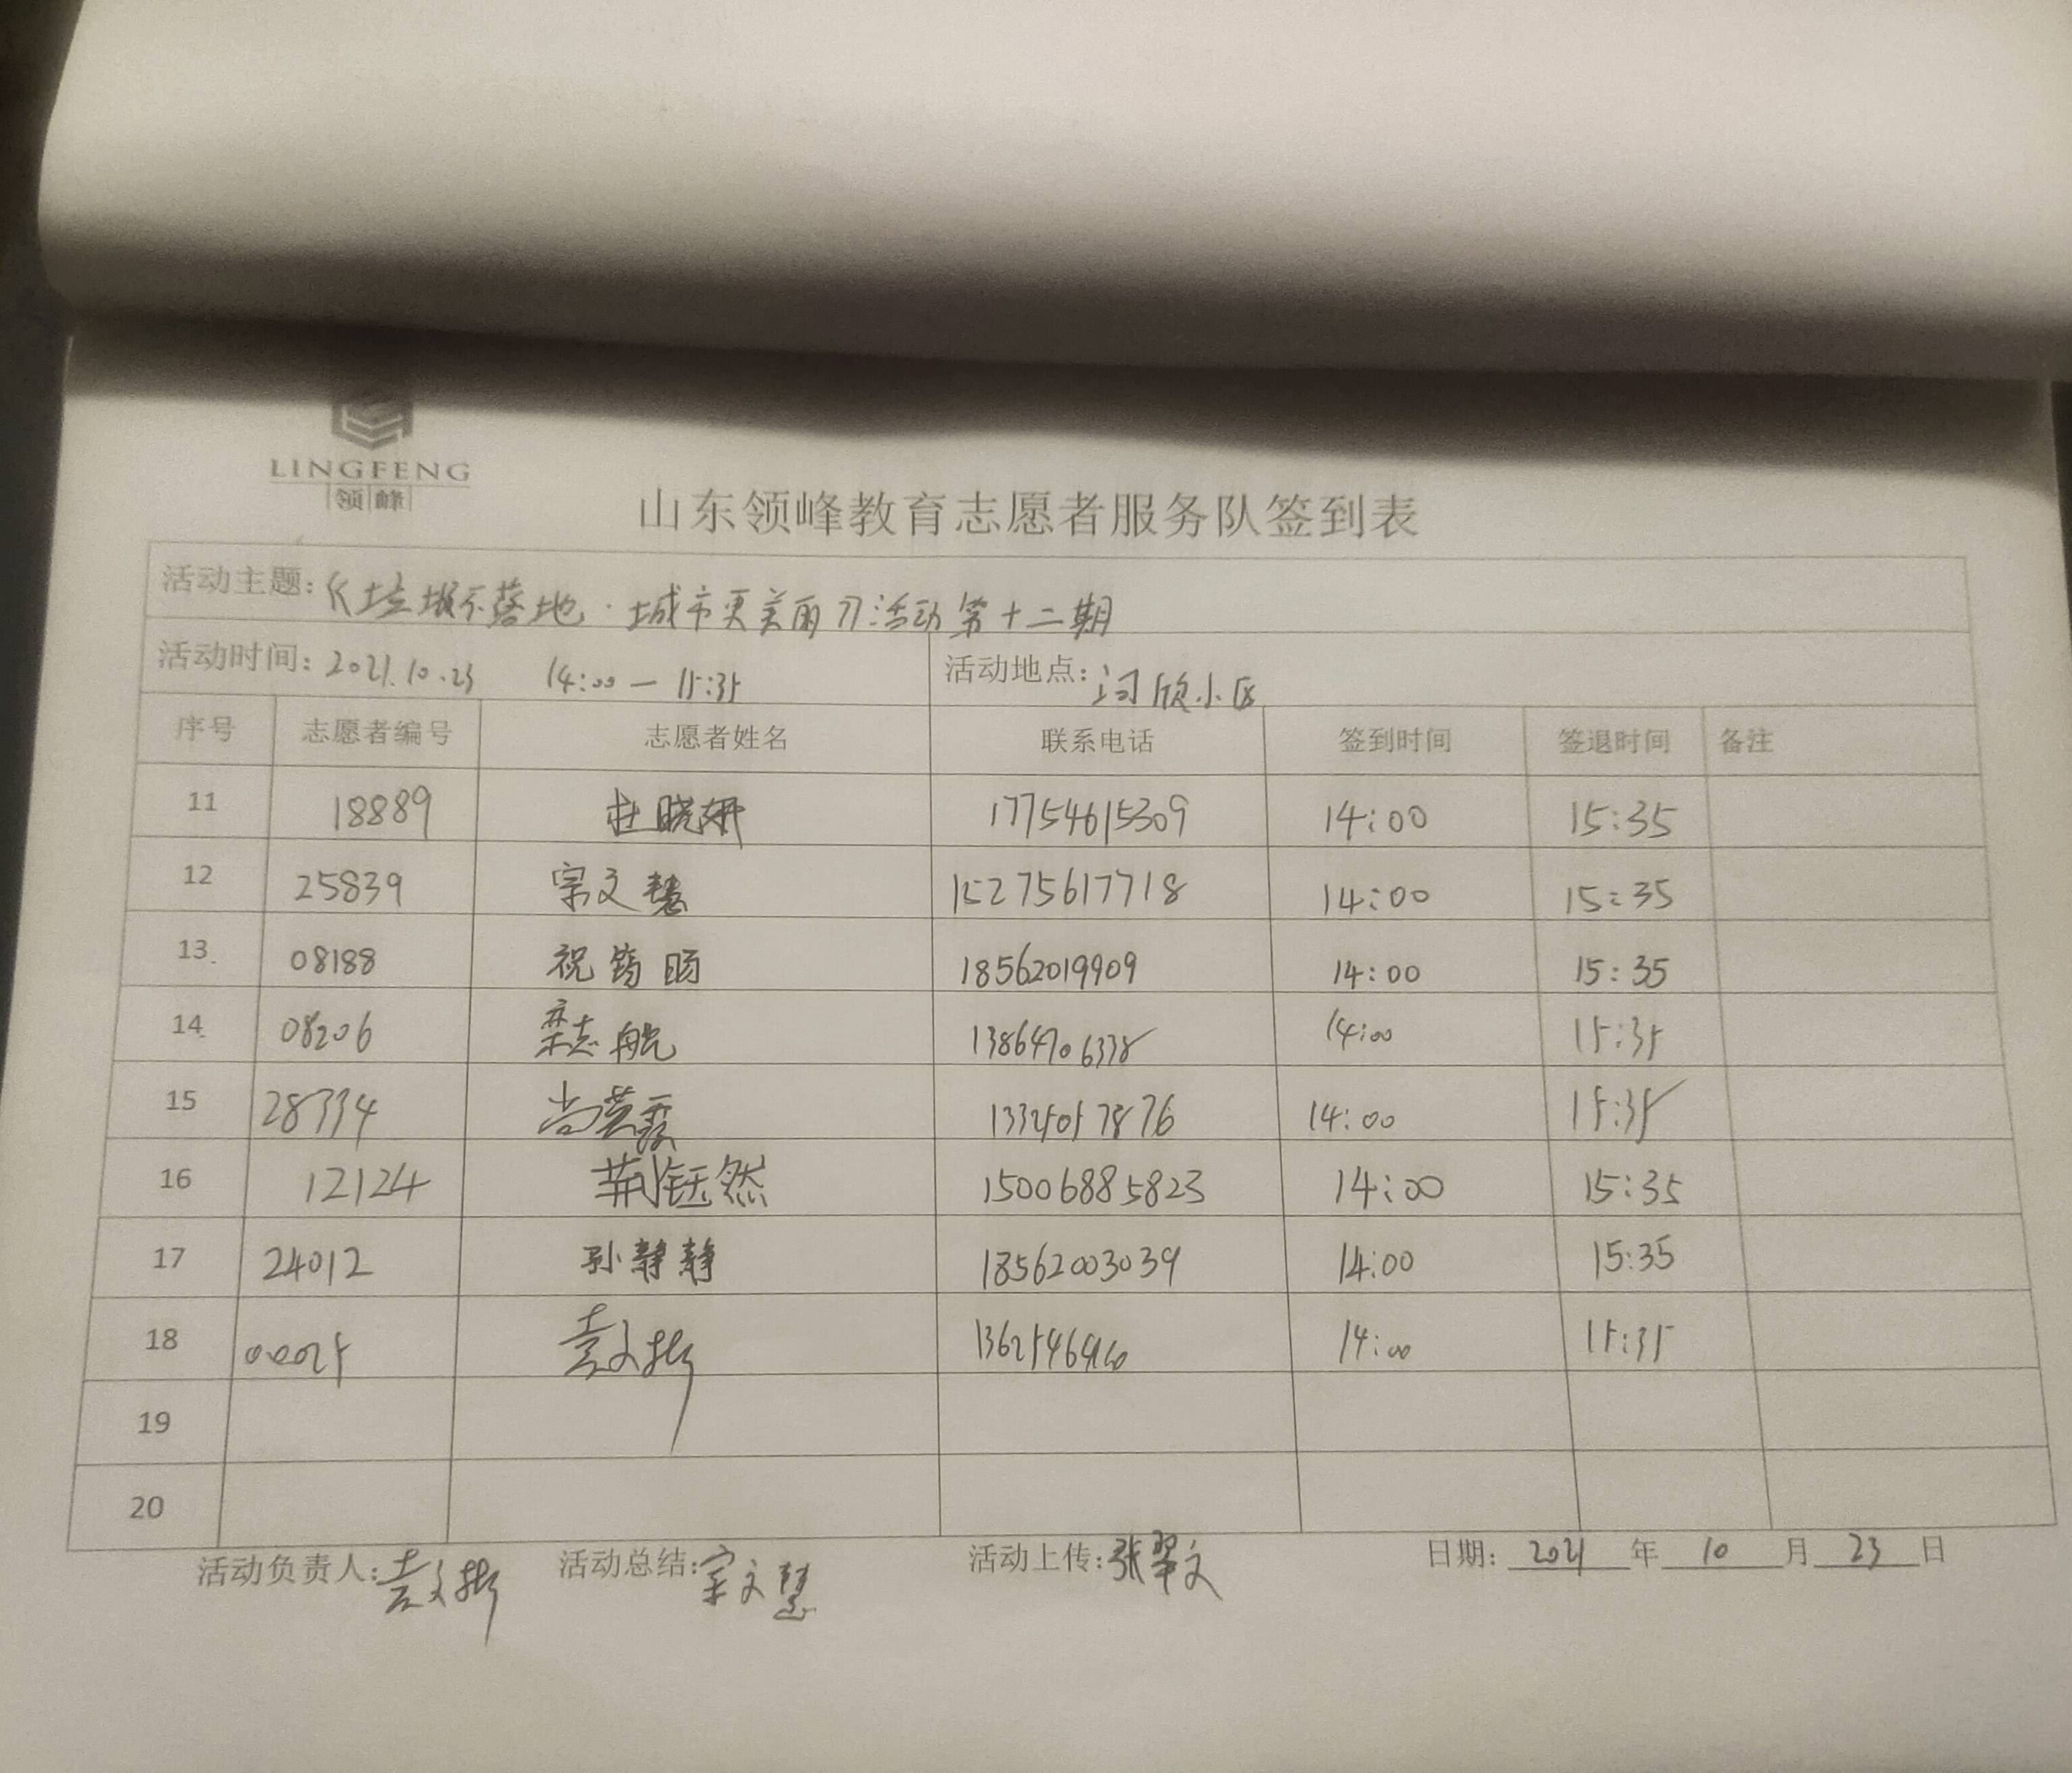 LINGFENG
领峰
山东领峰教育志愿者服务队签到表
活动主题:《垃圾不落地·城市更美丽》活动第十二期
活动时间:2021.10.23 14:00—15:35 活动地点:河欣小区
序号 志愿者编号 志愿者姓名 联系电话 签到时间 签退时间 备注
11 18889 杜晓妍 17754615309 14:00 15:35
12 25839 宗文慧 15275617718 14:00 15:35
13 08188 祝筠旸 18562019909 14:00 15:35
14 08206 栾志航 13864706338 14:00 15:35
15 28334 尚芸霞 13325057876 14:00 15:35
16 12124 荆钰然 15006885823 14:00 15:35
17 24012 孙静静 18562003039 14:00 15:35
18 00025 袁文彬 14:00 15:35
19
20
活动负责人:袁文彬 活动总结:宗文慧 活动上传:张翠文 日期:2021年10月23日